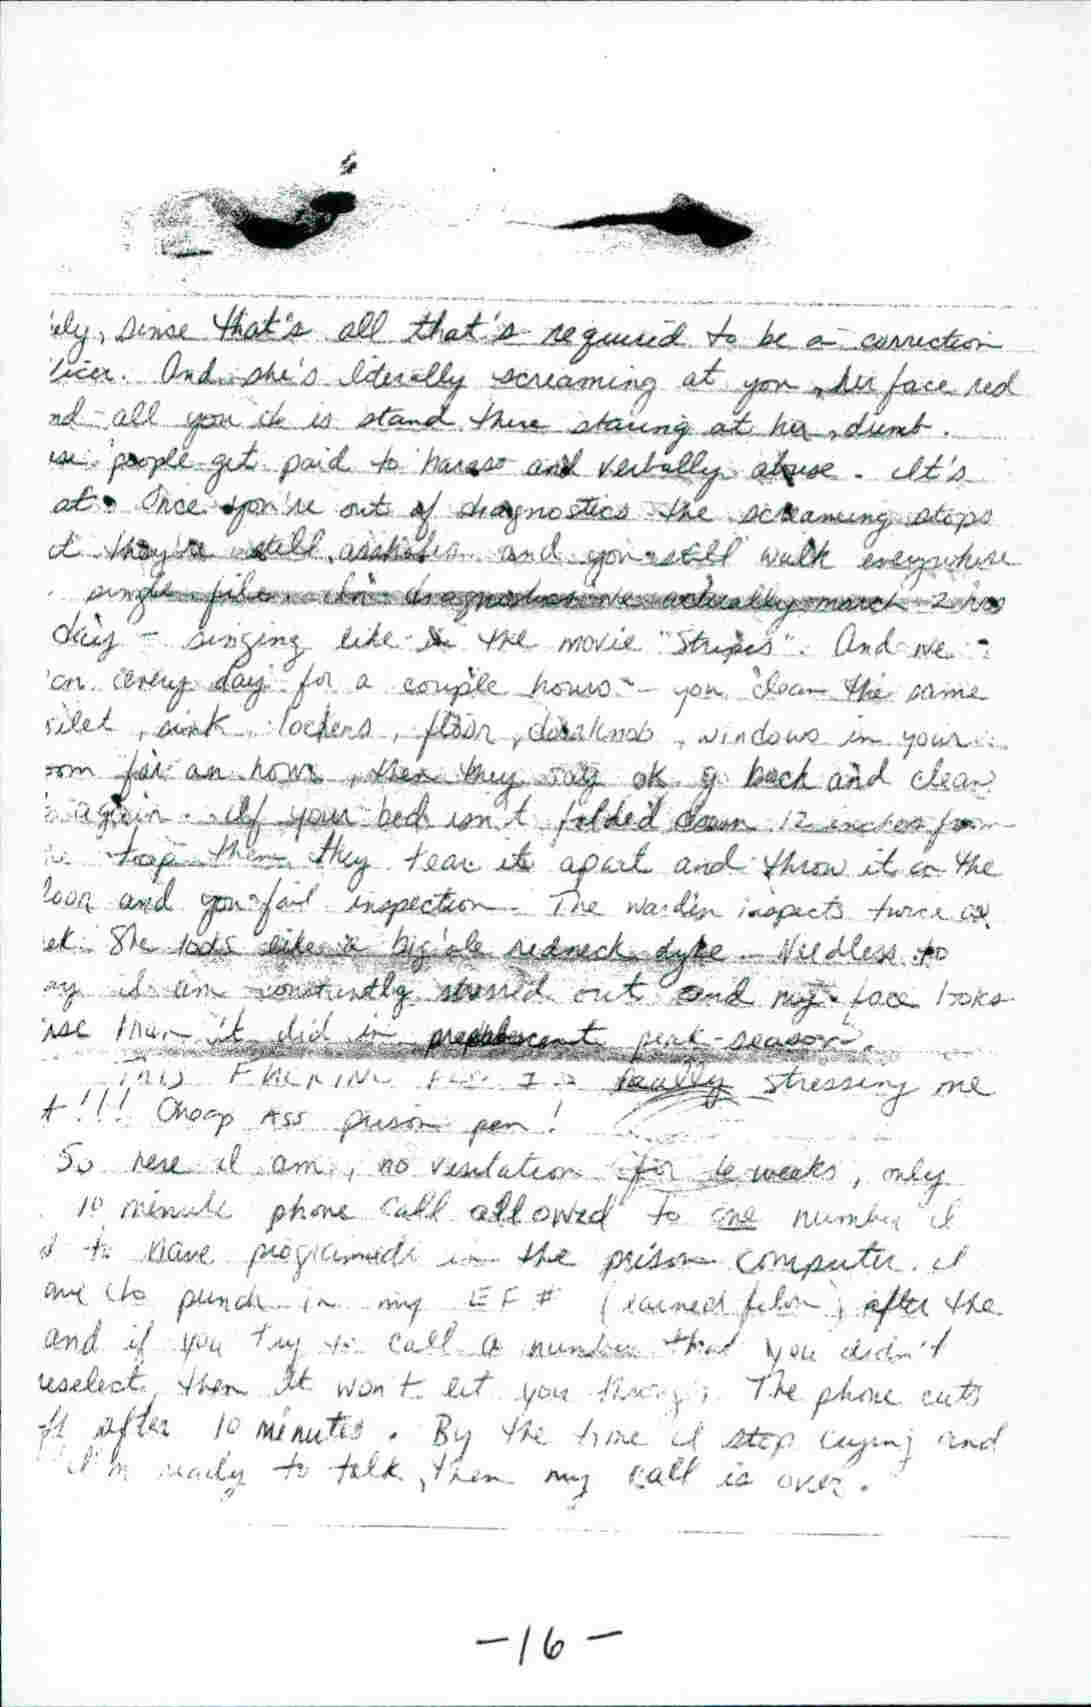 ely, sinse that's all that's required to be a correction
ficer. And she's literally screaming at you, her face red
nd all you do is stand there staring at her, dumb.
ese people get paid to harass and verbally abuse. It's
at. Once you're out of diagnostics the screaming stops
t they're still assholes and you still walk everywhere
single file. In diagnostics we actually march 2 hrs
day - singing like in the movie "Stripes". And we
an every day for a couple hours - you clean the same
oilet, sink, lockers, floor, doorknob, windows in your
oom for an hour, then they say ok go back and clean
again. If your bed isn't folded down 12 inches from
he top then they tear it apart and throw it on the
loor and you fail inspection. The warden inspects twice a
ek. She looks like a big ole redneck dyke. Needless to
ay I am constantly stressed out and my face looks
rse than it did in prepubescent peak-season.
THIS FUCKING PEN IS really stressing me
t!!! Cheap Ass prison pen!
So here I am, no visitation for 6 weeks, only
10 minute phone call allowed to one number I
d to have programmed in the prison computer. I
ave to punch in my EF # after the
and if you try to call a number that you didn't
reselect, then it won't let you through. The phone cuts
ff after 10 minutes. By the time I stop crying and
I'm ready to talk, then my call is over.
-16-